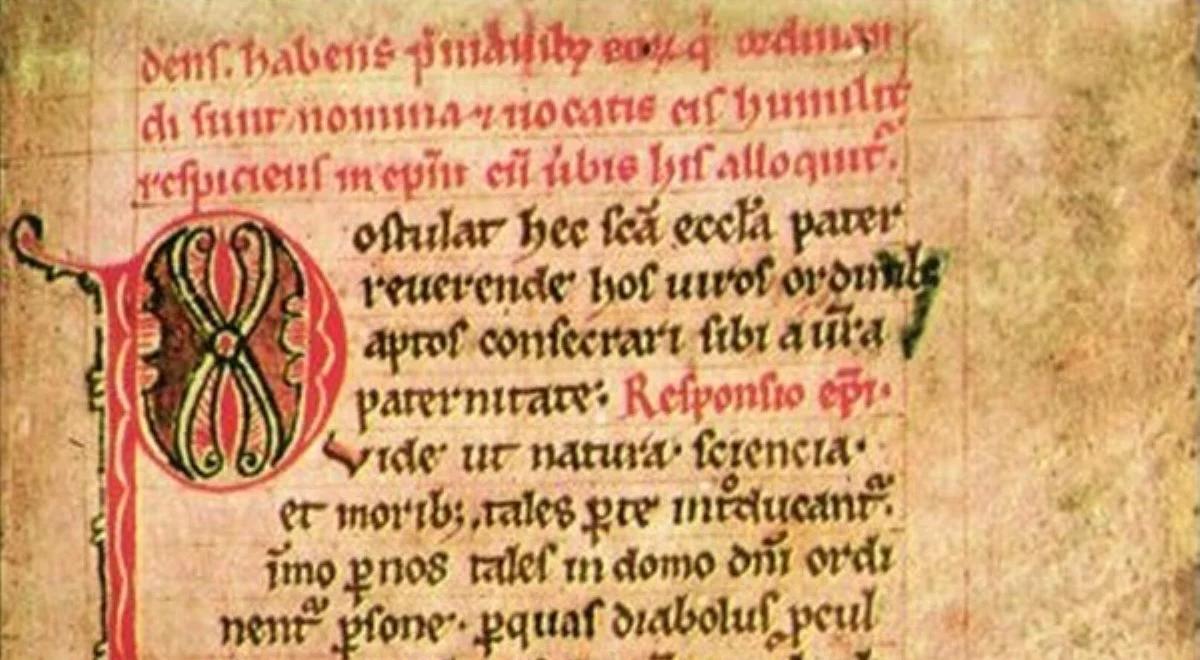 denſ. habens p̄ manib; eoꝝ q̇ ordinan
di ſunt nomina ⁊ uocatis eiſ humilit̃
reſpicienſ in ep̄m cū ũbis hiſ alloquit᷑.
Poſtulat hec ſcā eccƚa pater
reuerende hoſ uiroſ ordinib;
aptoſ conſecrari ſibi a ūra
paternitate: Reſponſio ep̄i.
Vide ut natura· ſciencia·
et morib;, tales ꝑ te introducant᷑.
īmo ꝑ nos taleſ in domo dn̄i ordi
nent᷑ ꝑſone· ꝑ quaſ diaboluſ pcul